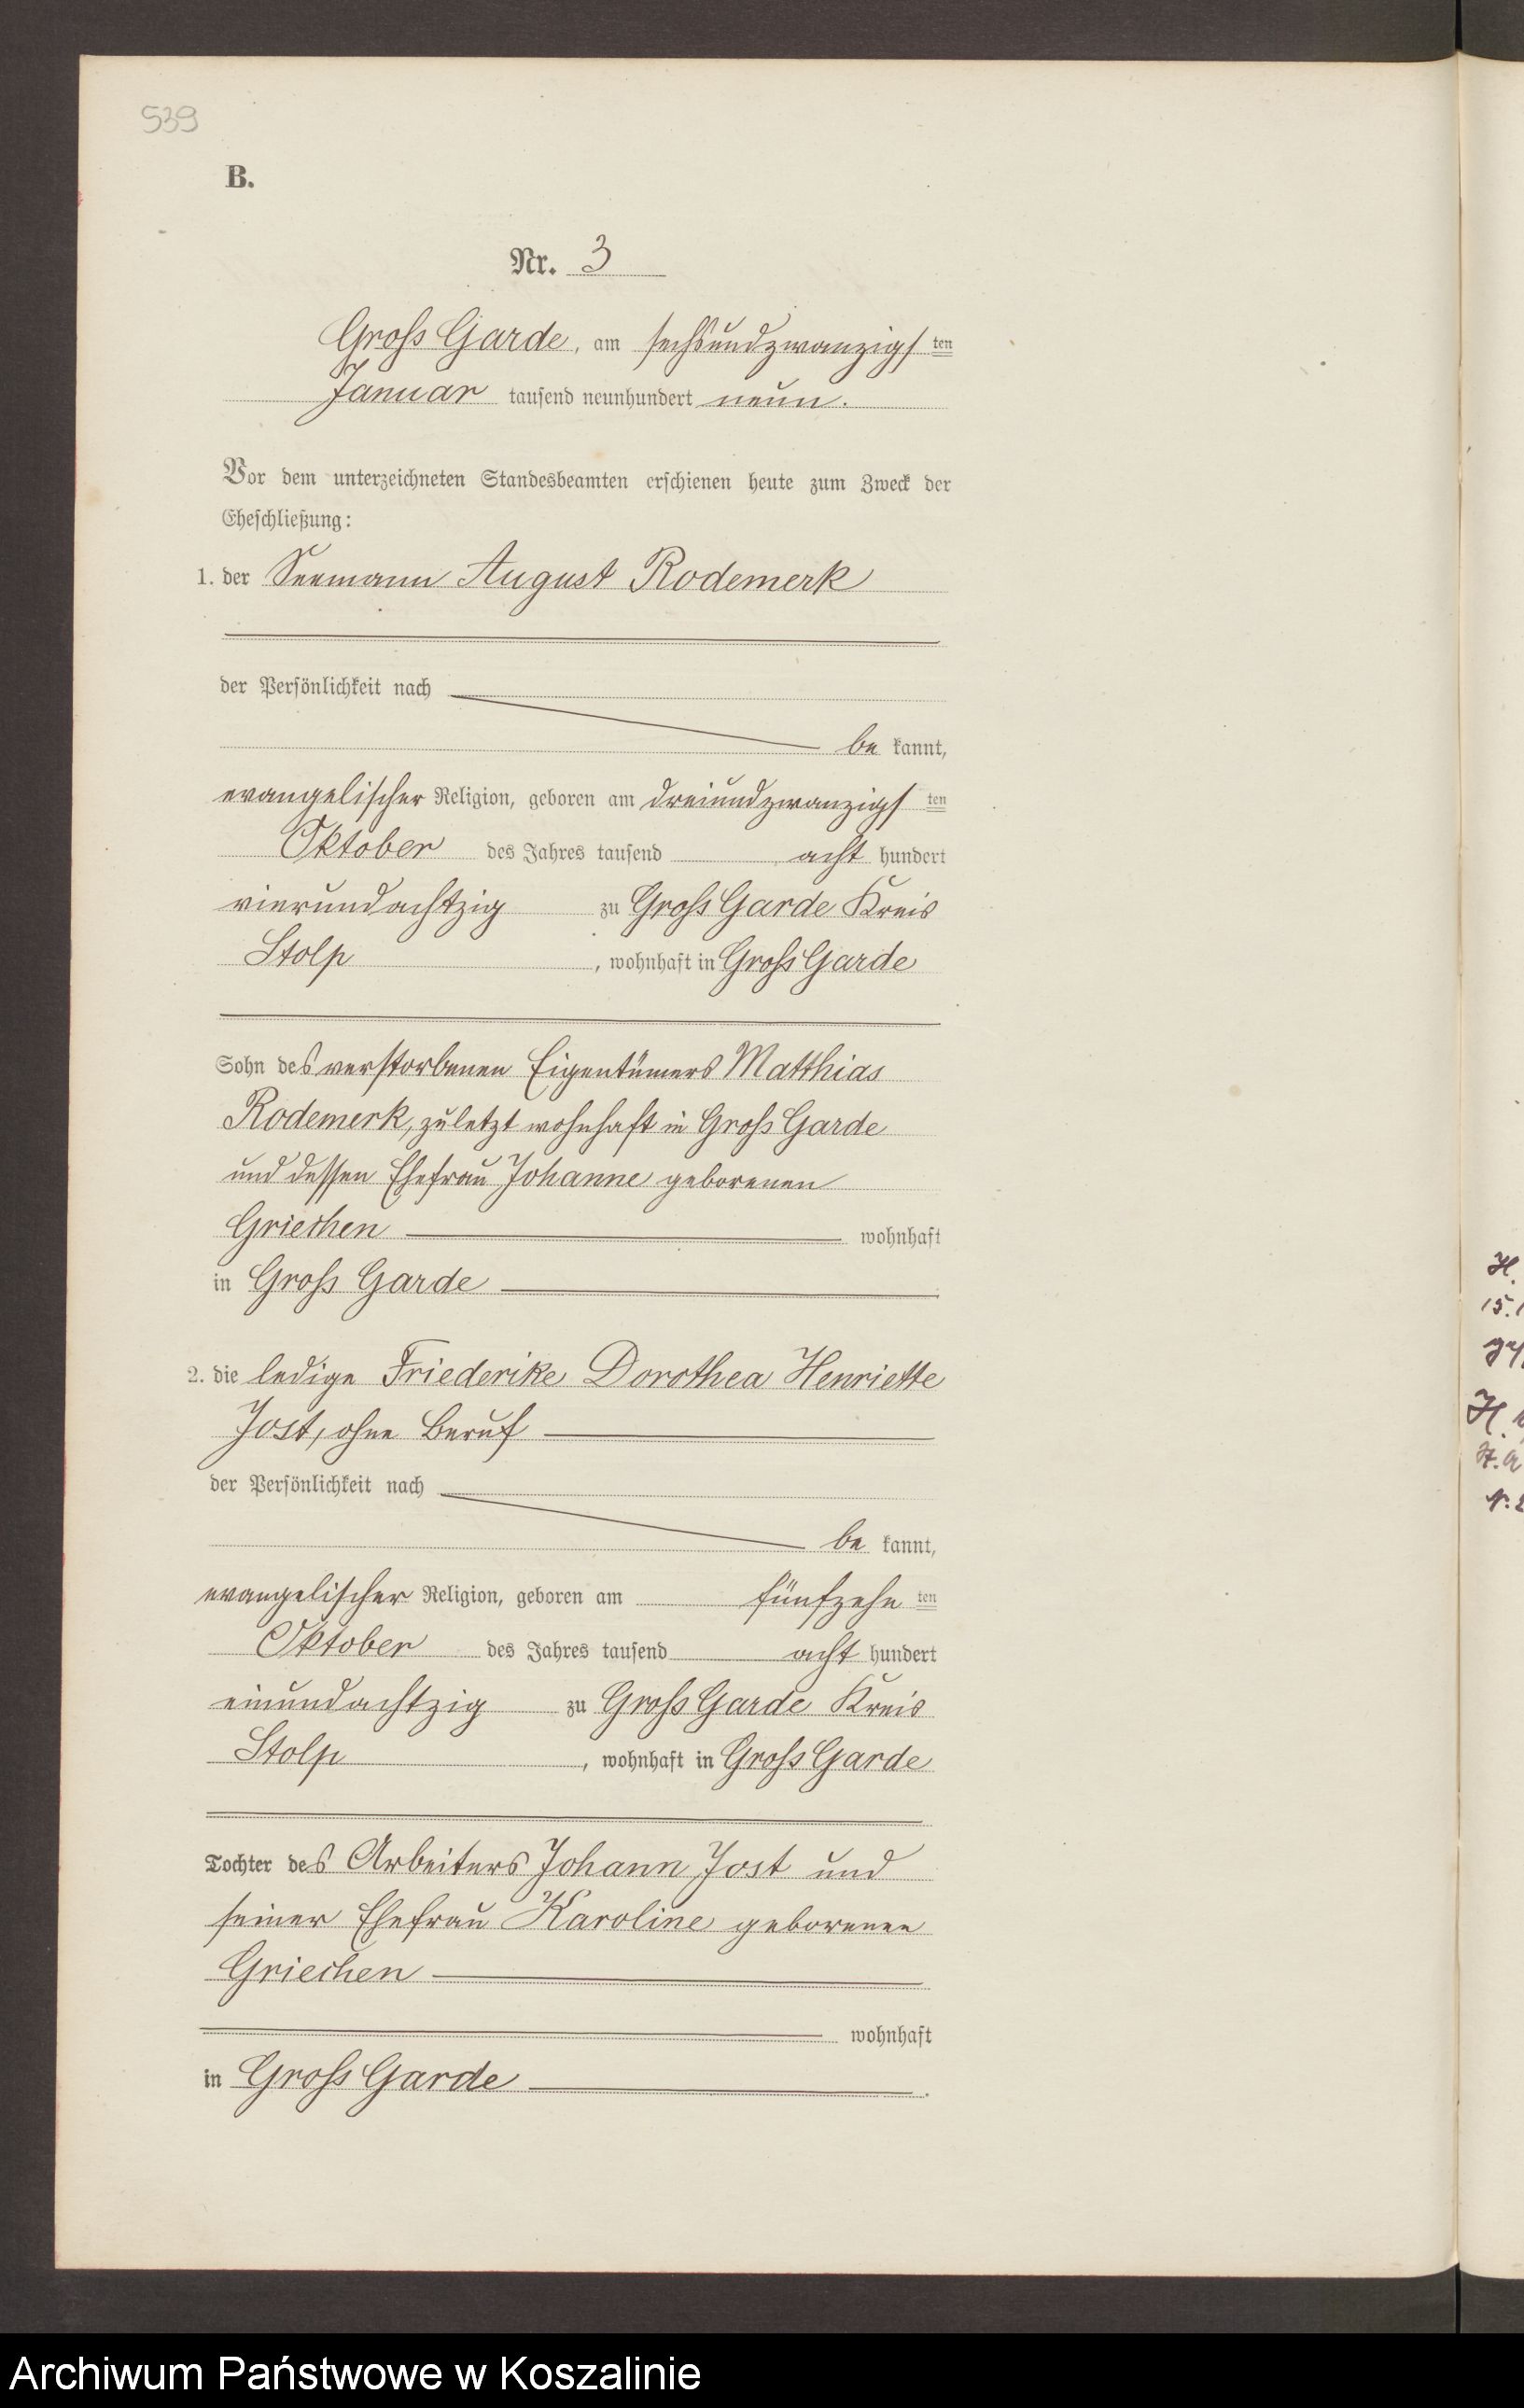 539
B.
Nr. 3
Gross Garde, am sechsundzwanzigsten
Januar tausend neunhundert neun.
Vor dem unterzeichneten Standesbeamten erschienen heute zum Zweck der
Eheschließung:
1. der Seemann August Rodemerk
der Persönlichkeit nach
be kannt,
evangelischer Religion, geboren am dreiundzwanzigsten
Oktober des Jahres tausend acht hundert
vierundachtzig zu Gross Garde Kreis
Stolp, wohnhaft in Gross Garde
Sohn des verstorbenen Eigentümers Matthias
Rodemerk, zuletzt wohnhaft in Gross Garde
und dessen Ehefrau Johanne geborenen
Griechen wohnhaft
in Gross Garde
2. die ledige Friederike Dorothea Henriette
Jost, ohne Beruf
der Persönlichkeit nach
be kannt,
evangelischer Religion, geboren am fünfzehnten
Oktober des Jahres tausend acht hundert
einundachtzig zu Gross Garde Kreis
Stolp, wohnhaft in Gross Garde
Tochter des Arbeiters Johann Jost und
seiner Ehefrau Karoline geborenen
Griechen
wohnhaft
in Gross Garde.
H.
15.
H.
Archiwum Państwowe w Koszalinie